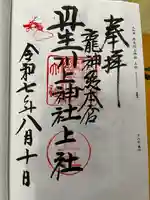 奉拝
龍神総本宮
丹生川上神社上社
令和七年八月十日